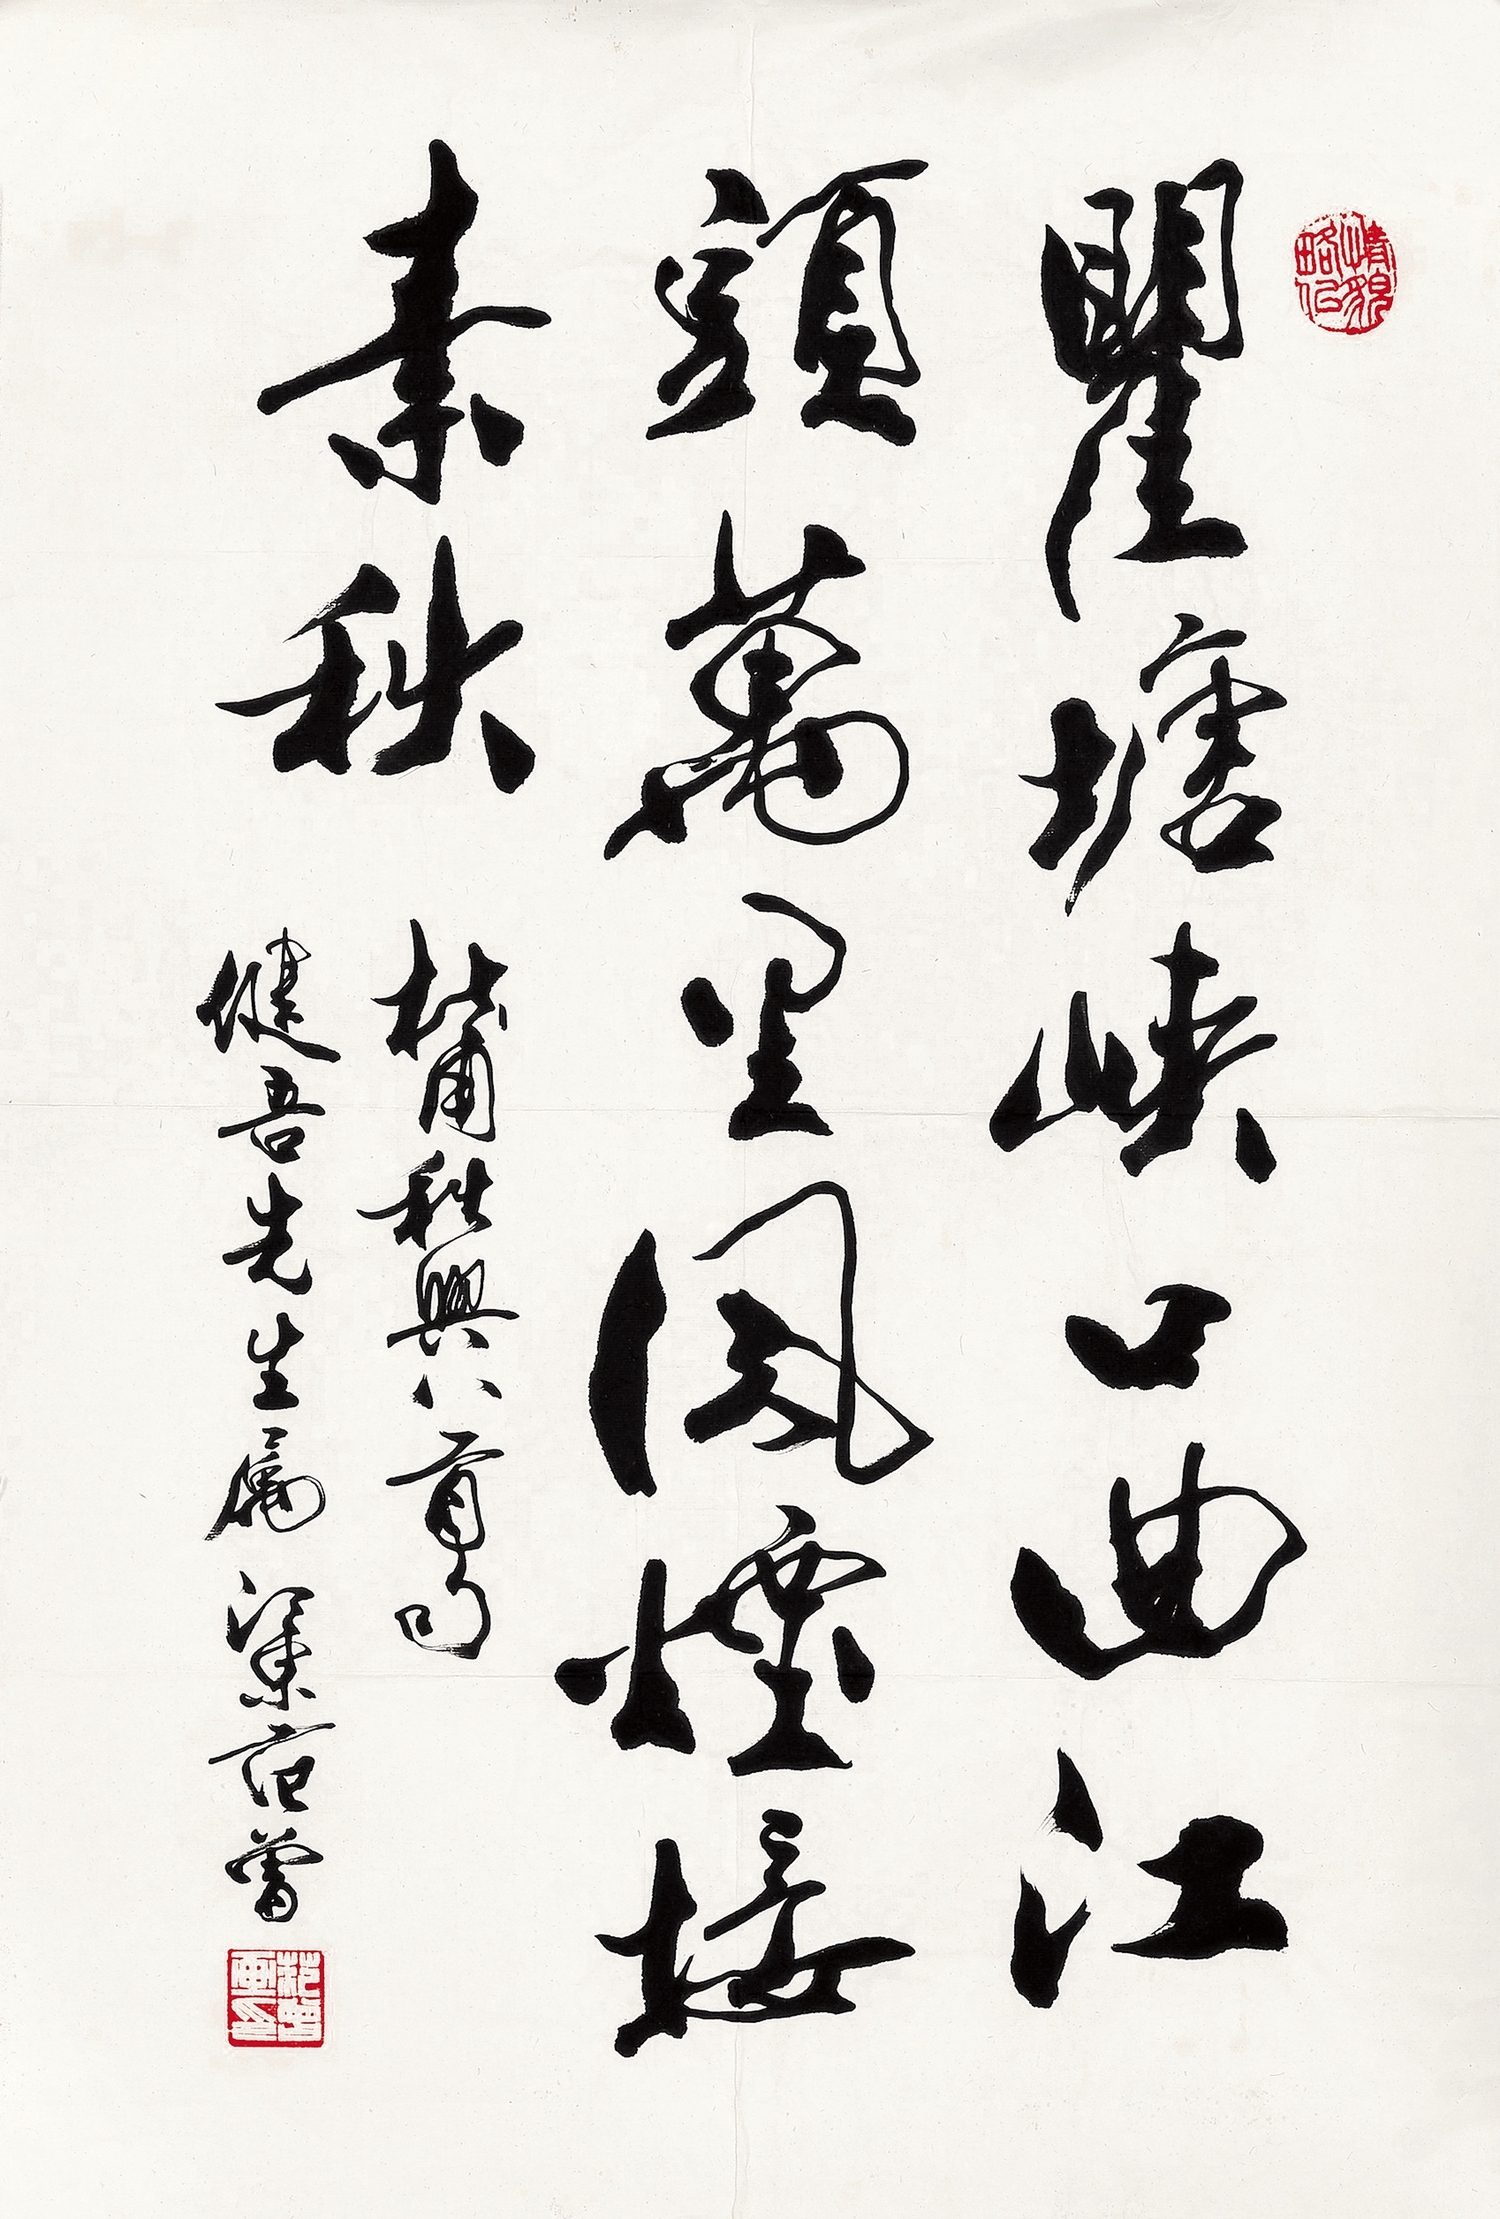 瞿塘峽口曲江
頭萬里風煙接
素秋
杜甫秋興八首句
健吾先生屬 江東范曾